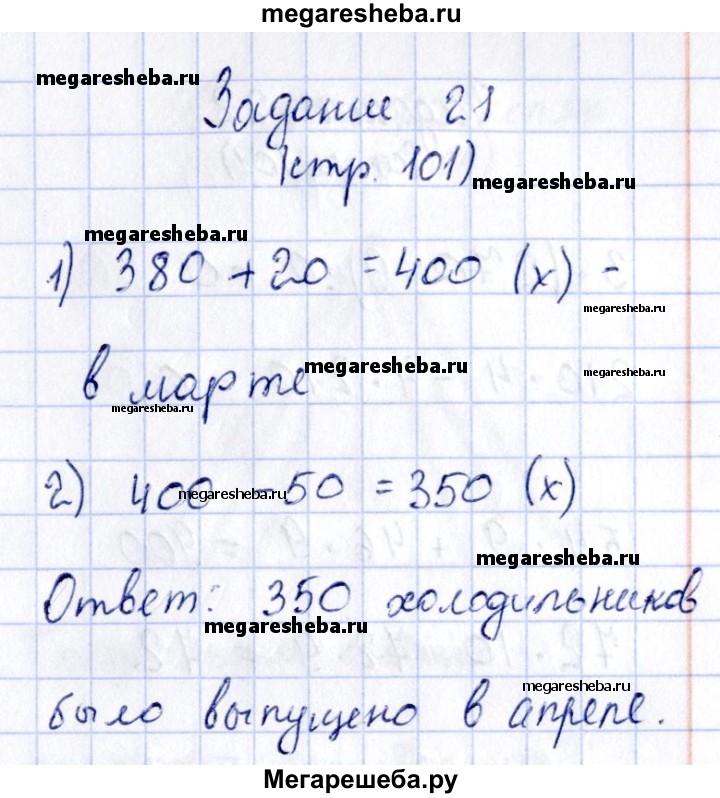 megaresheba.ru
megaresheba.ru
Задание 21
(стр. 101)
megaresheba.ru
megaresheba.ru
1) 380 + 20 = 400 (х) -
megaresheba.ru
в марте
megaresheba.ru
megaresheba.ru
megaresheba.ru
2) 400 - 50 = 350 (х)
megaresheba.ru
megaresheba.ru
Ответ: 350 холодильников
megaresheba.ru
было выпущено в апреле.
megaresheba.ru
Мегарешеба.ру